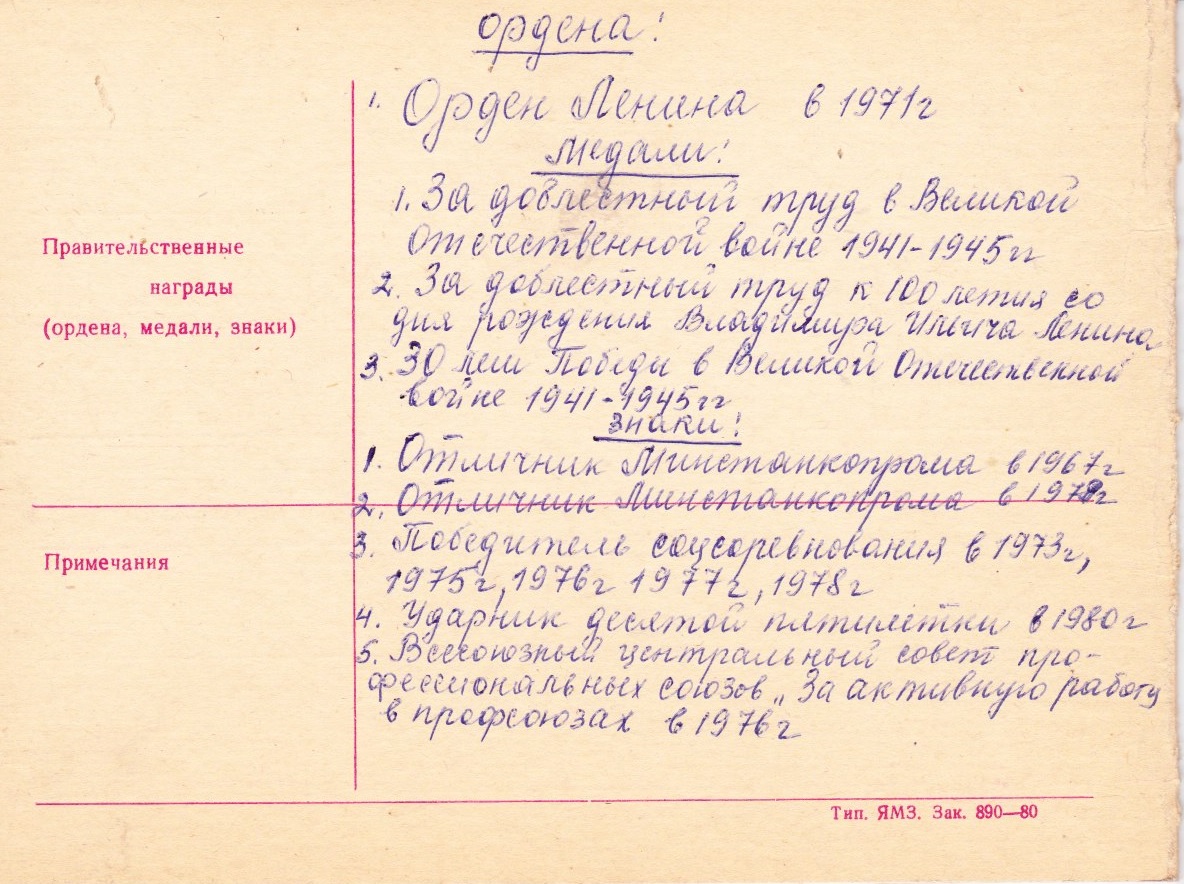 ордена:
1. Орден Ленина в 1971г
Медали:
1. За доблестный труд в Великой
Отечественной войне 1941-1945гг
Правительственные
награды
(ордена, медали, знаки)
2. За доблестный труд к 100 летия со
дня рождения Владимира Ильича Ленина
3. 30 лет Победы в Великой Отечественной
войне 1941-1945гг
знаки:
1. Отличник Минстанкопрома в 1967г
2. Отличник Минстанкопрома в
Примечания
3. Победитель соцсоревнования в 1973г,
1975г, 1976г 1977г, 1978г
4. Ударник десятой пятилетки в 1980г
5. Всесоюзный центральный совет про-
фессиональных союзов „За активную работу
в профсоюзах в 1976г
Тип. ЯМЗ. Зак. 890—80